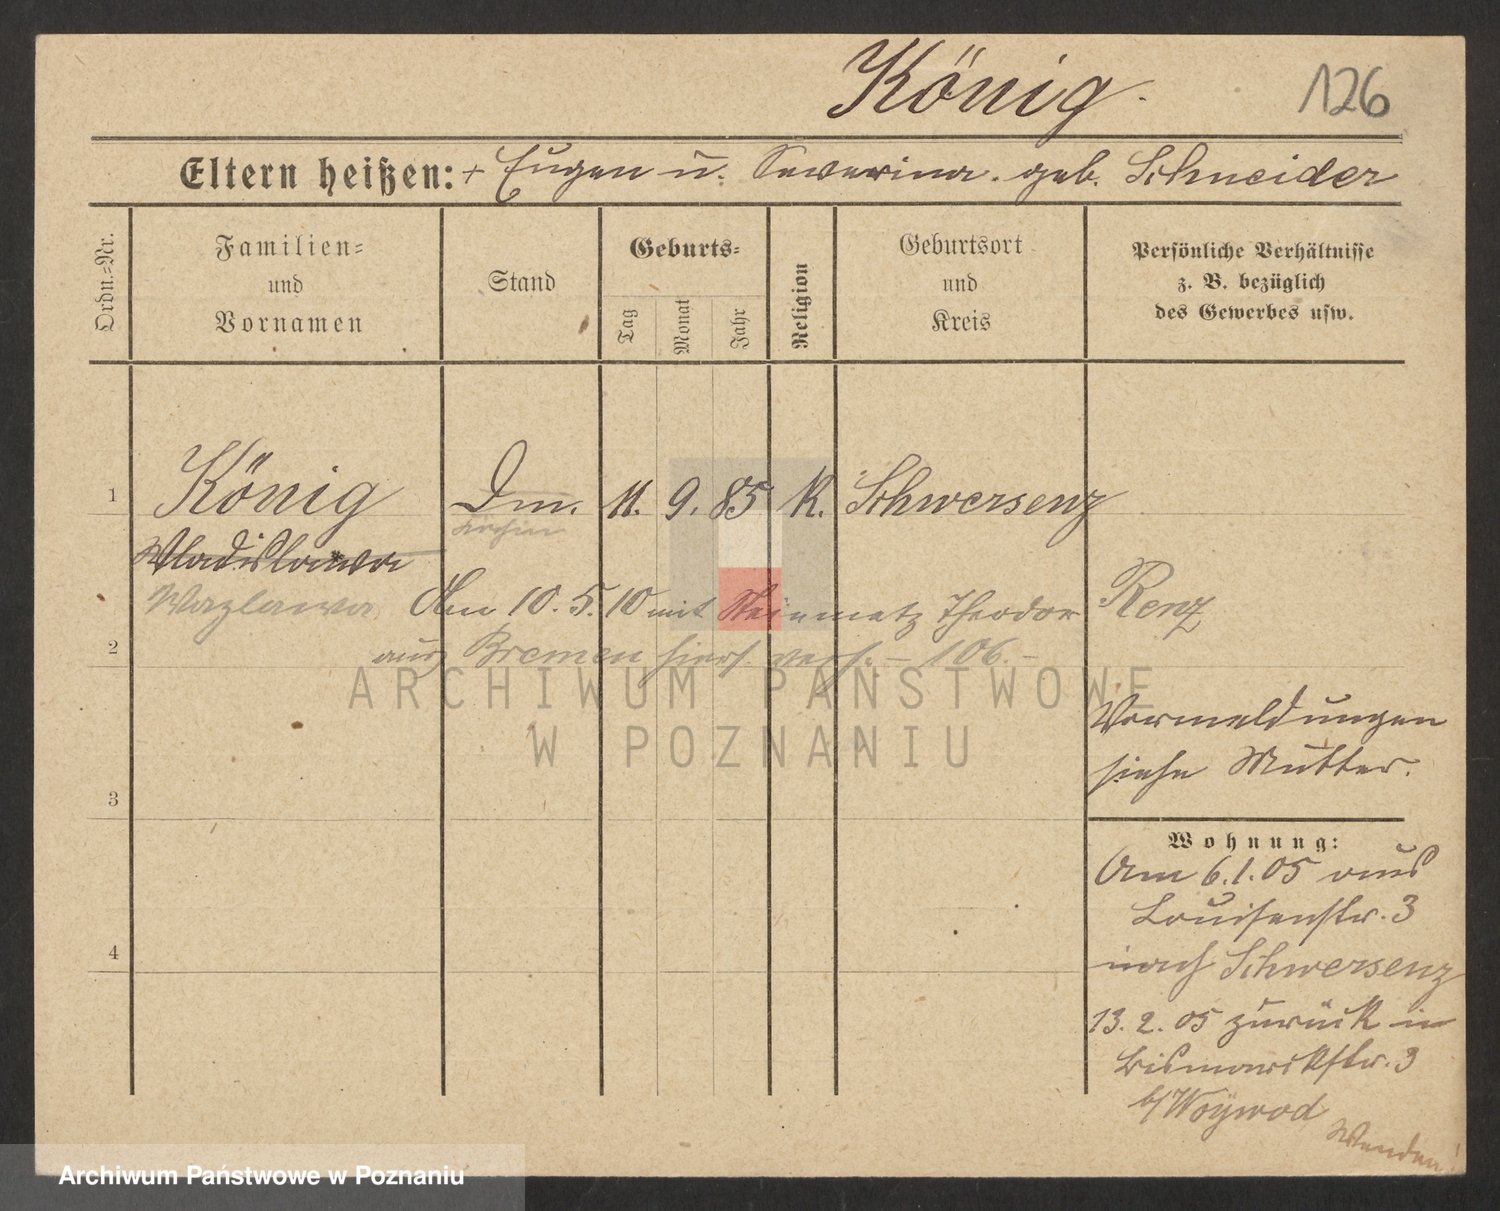 König.
126
Eltern heißen: + Eugen u. Severina. geb. Schneider
Ordn.=Nr.
Familien=
und
Vornamen
Stand
Geburts=
Tag
Monat
Jahr
Religion
Geburtsort
und
Kreis
Persönliche Verhältnisse
z. B. bezüglich
des Gewerbes usw.
1 König Dm. 11. 9. 85 K. Schwersenz
Wladislawa
Wazlawa Am 10. 5. 10 mit Steinmetz Theodor Renz
2 aus Bremen hiers. verh. – 106. –
ARCHIWUM PAŃSTWOWE
W POZNANIU
Vormeldungen
siehe Mutter.
3
Wohnung:
Am 6.1.05 aus
Louisenstr. 3
4 nach Schwersenz
13. 2. 05 zurück in
Bismarckstr. 3
b/ Woywod
Wenden!
Archiwum Państwowe w Poznaniu